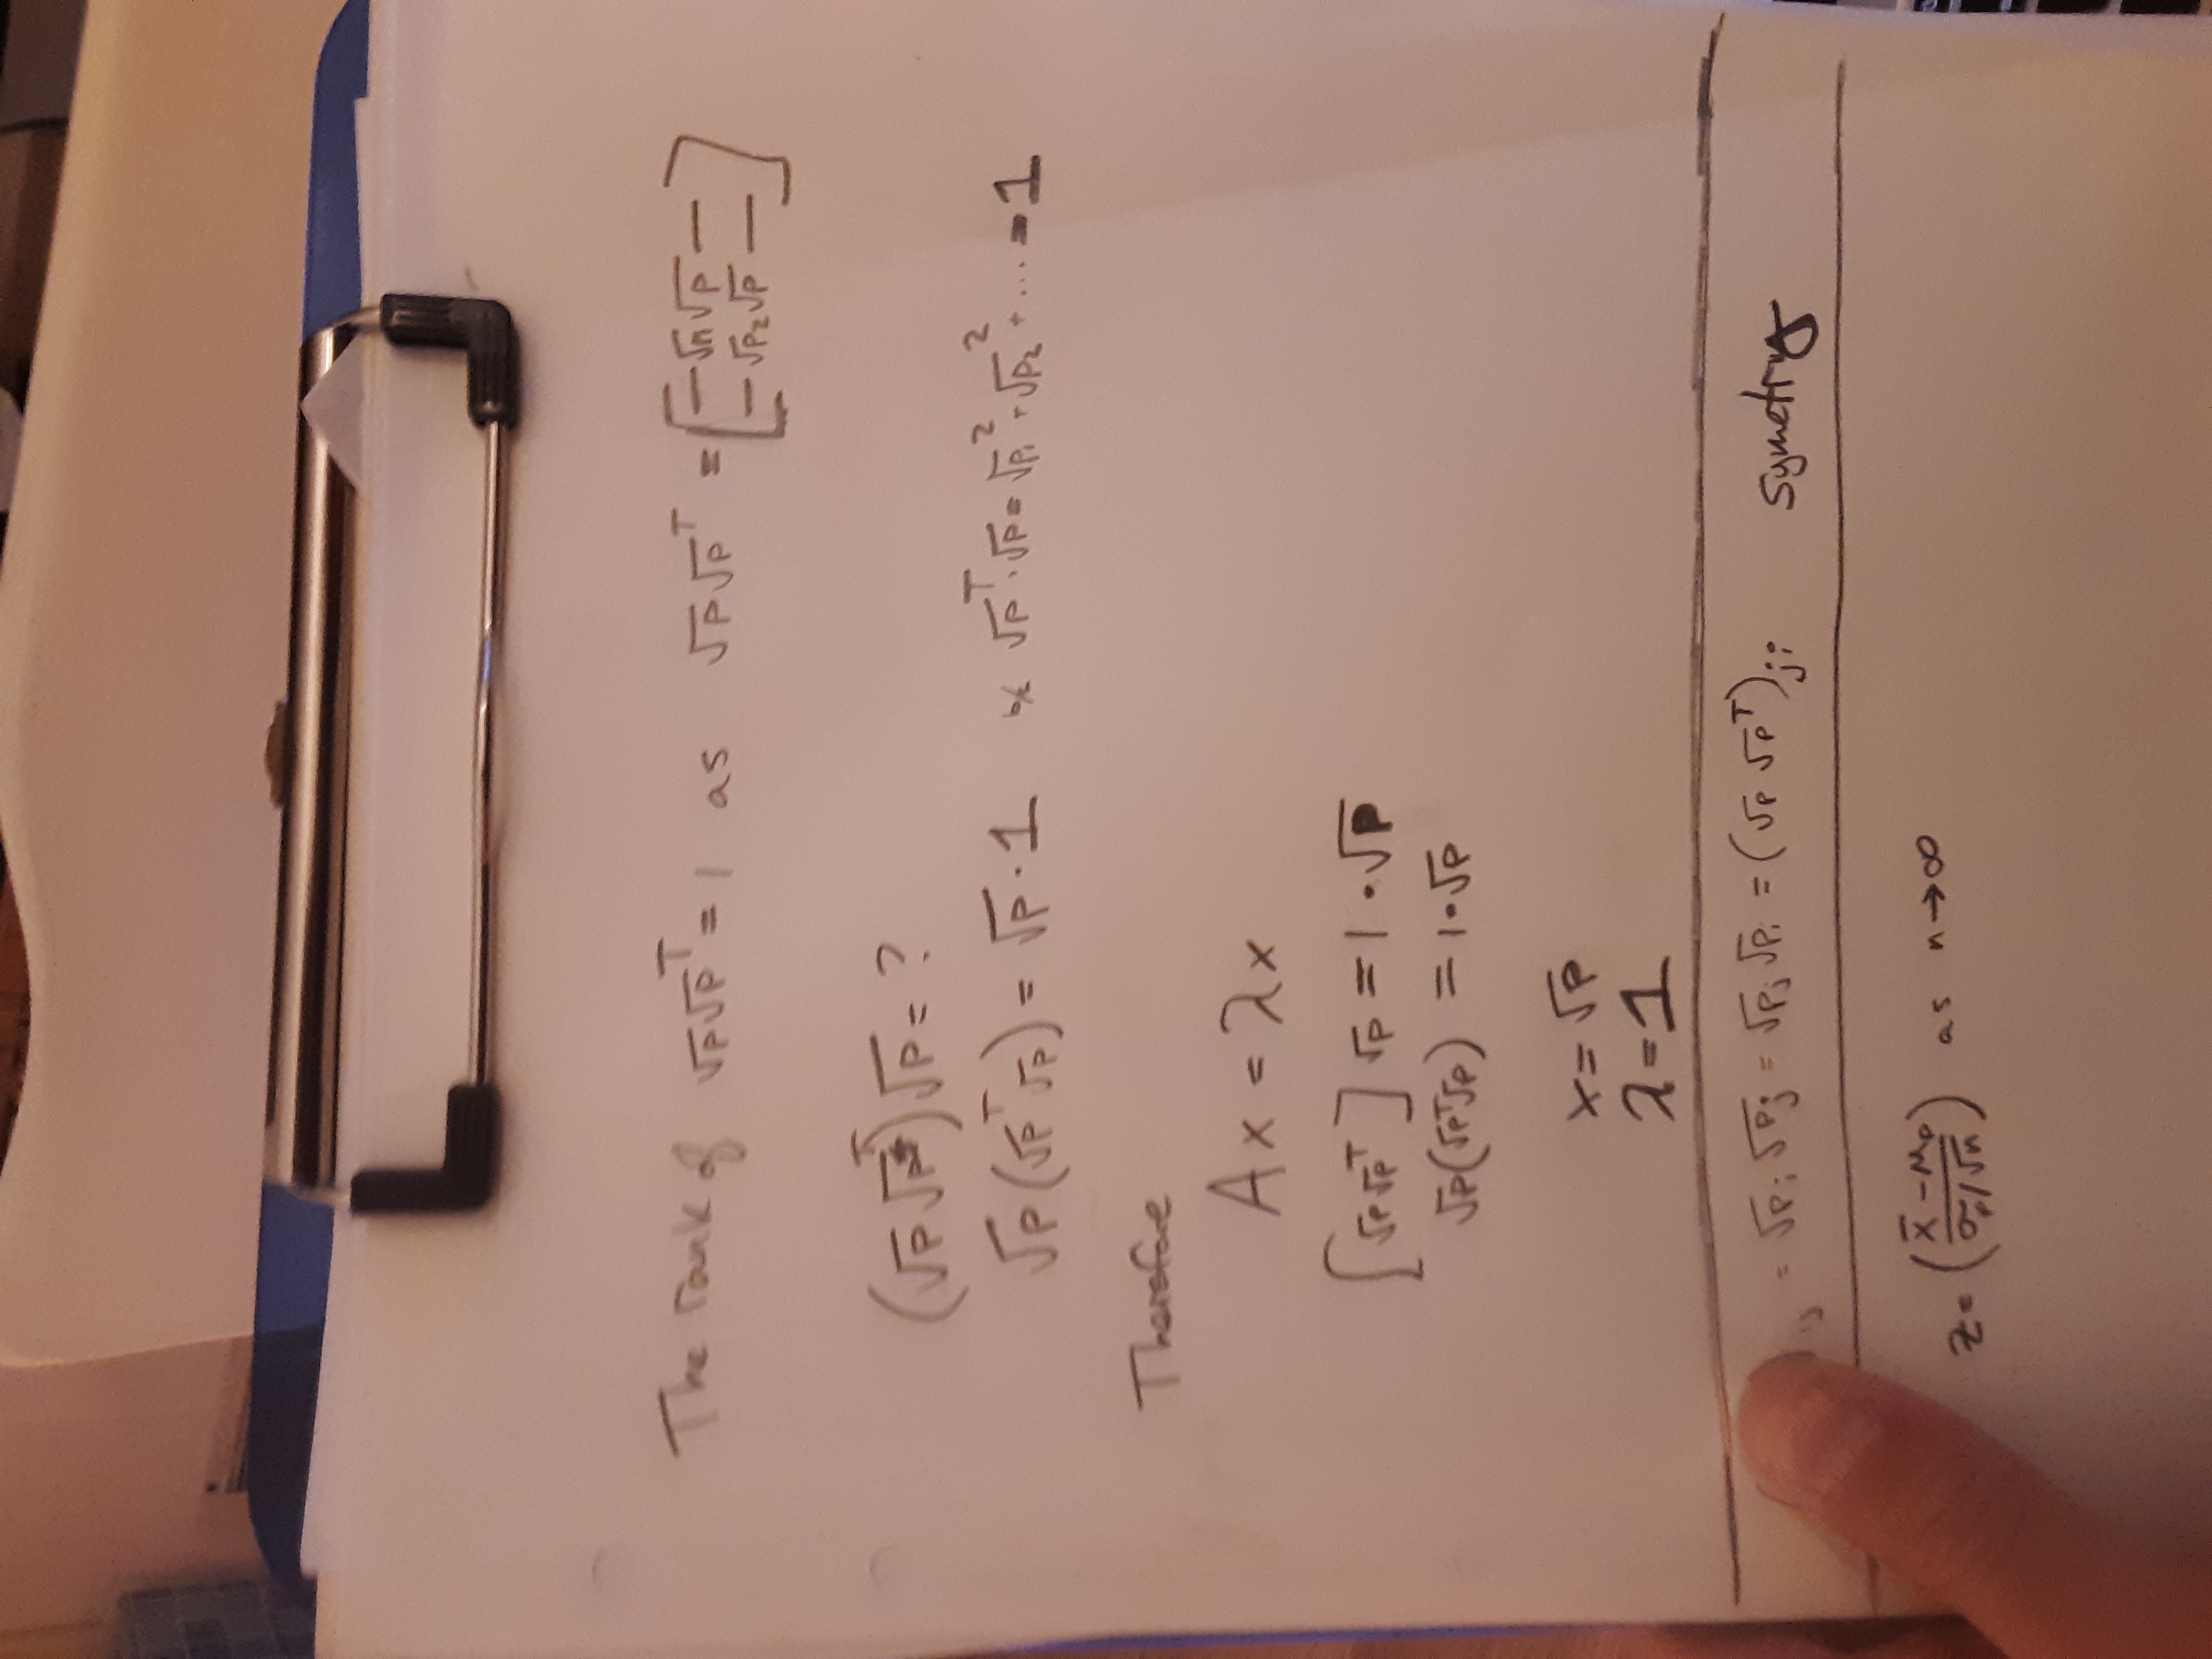 The rank of √p√p^T = 1 as √p√p^T = [—√p₁√p— —√p₂√p—]
(√p √p^T)√p = ?
√p(√p^T √p) = √p · 1 b/c √p^T · √p = √p₁² + √p₂² + ... = 1
Therefore
Ax = λx
[√p√p^T] √p = 1 · √p
√p(√p^T√p) = 1 · √p
x = √p
λ = 1
ij = √pᵢ √pⱼ = √pⱼ √pᵢ = (√p √p^T)ⱼᵢ Symetry
z = (x̄ - μ₀ / σ₀/√n) as n→∞